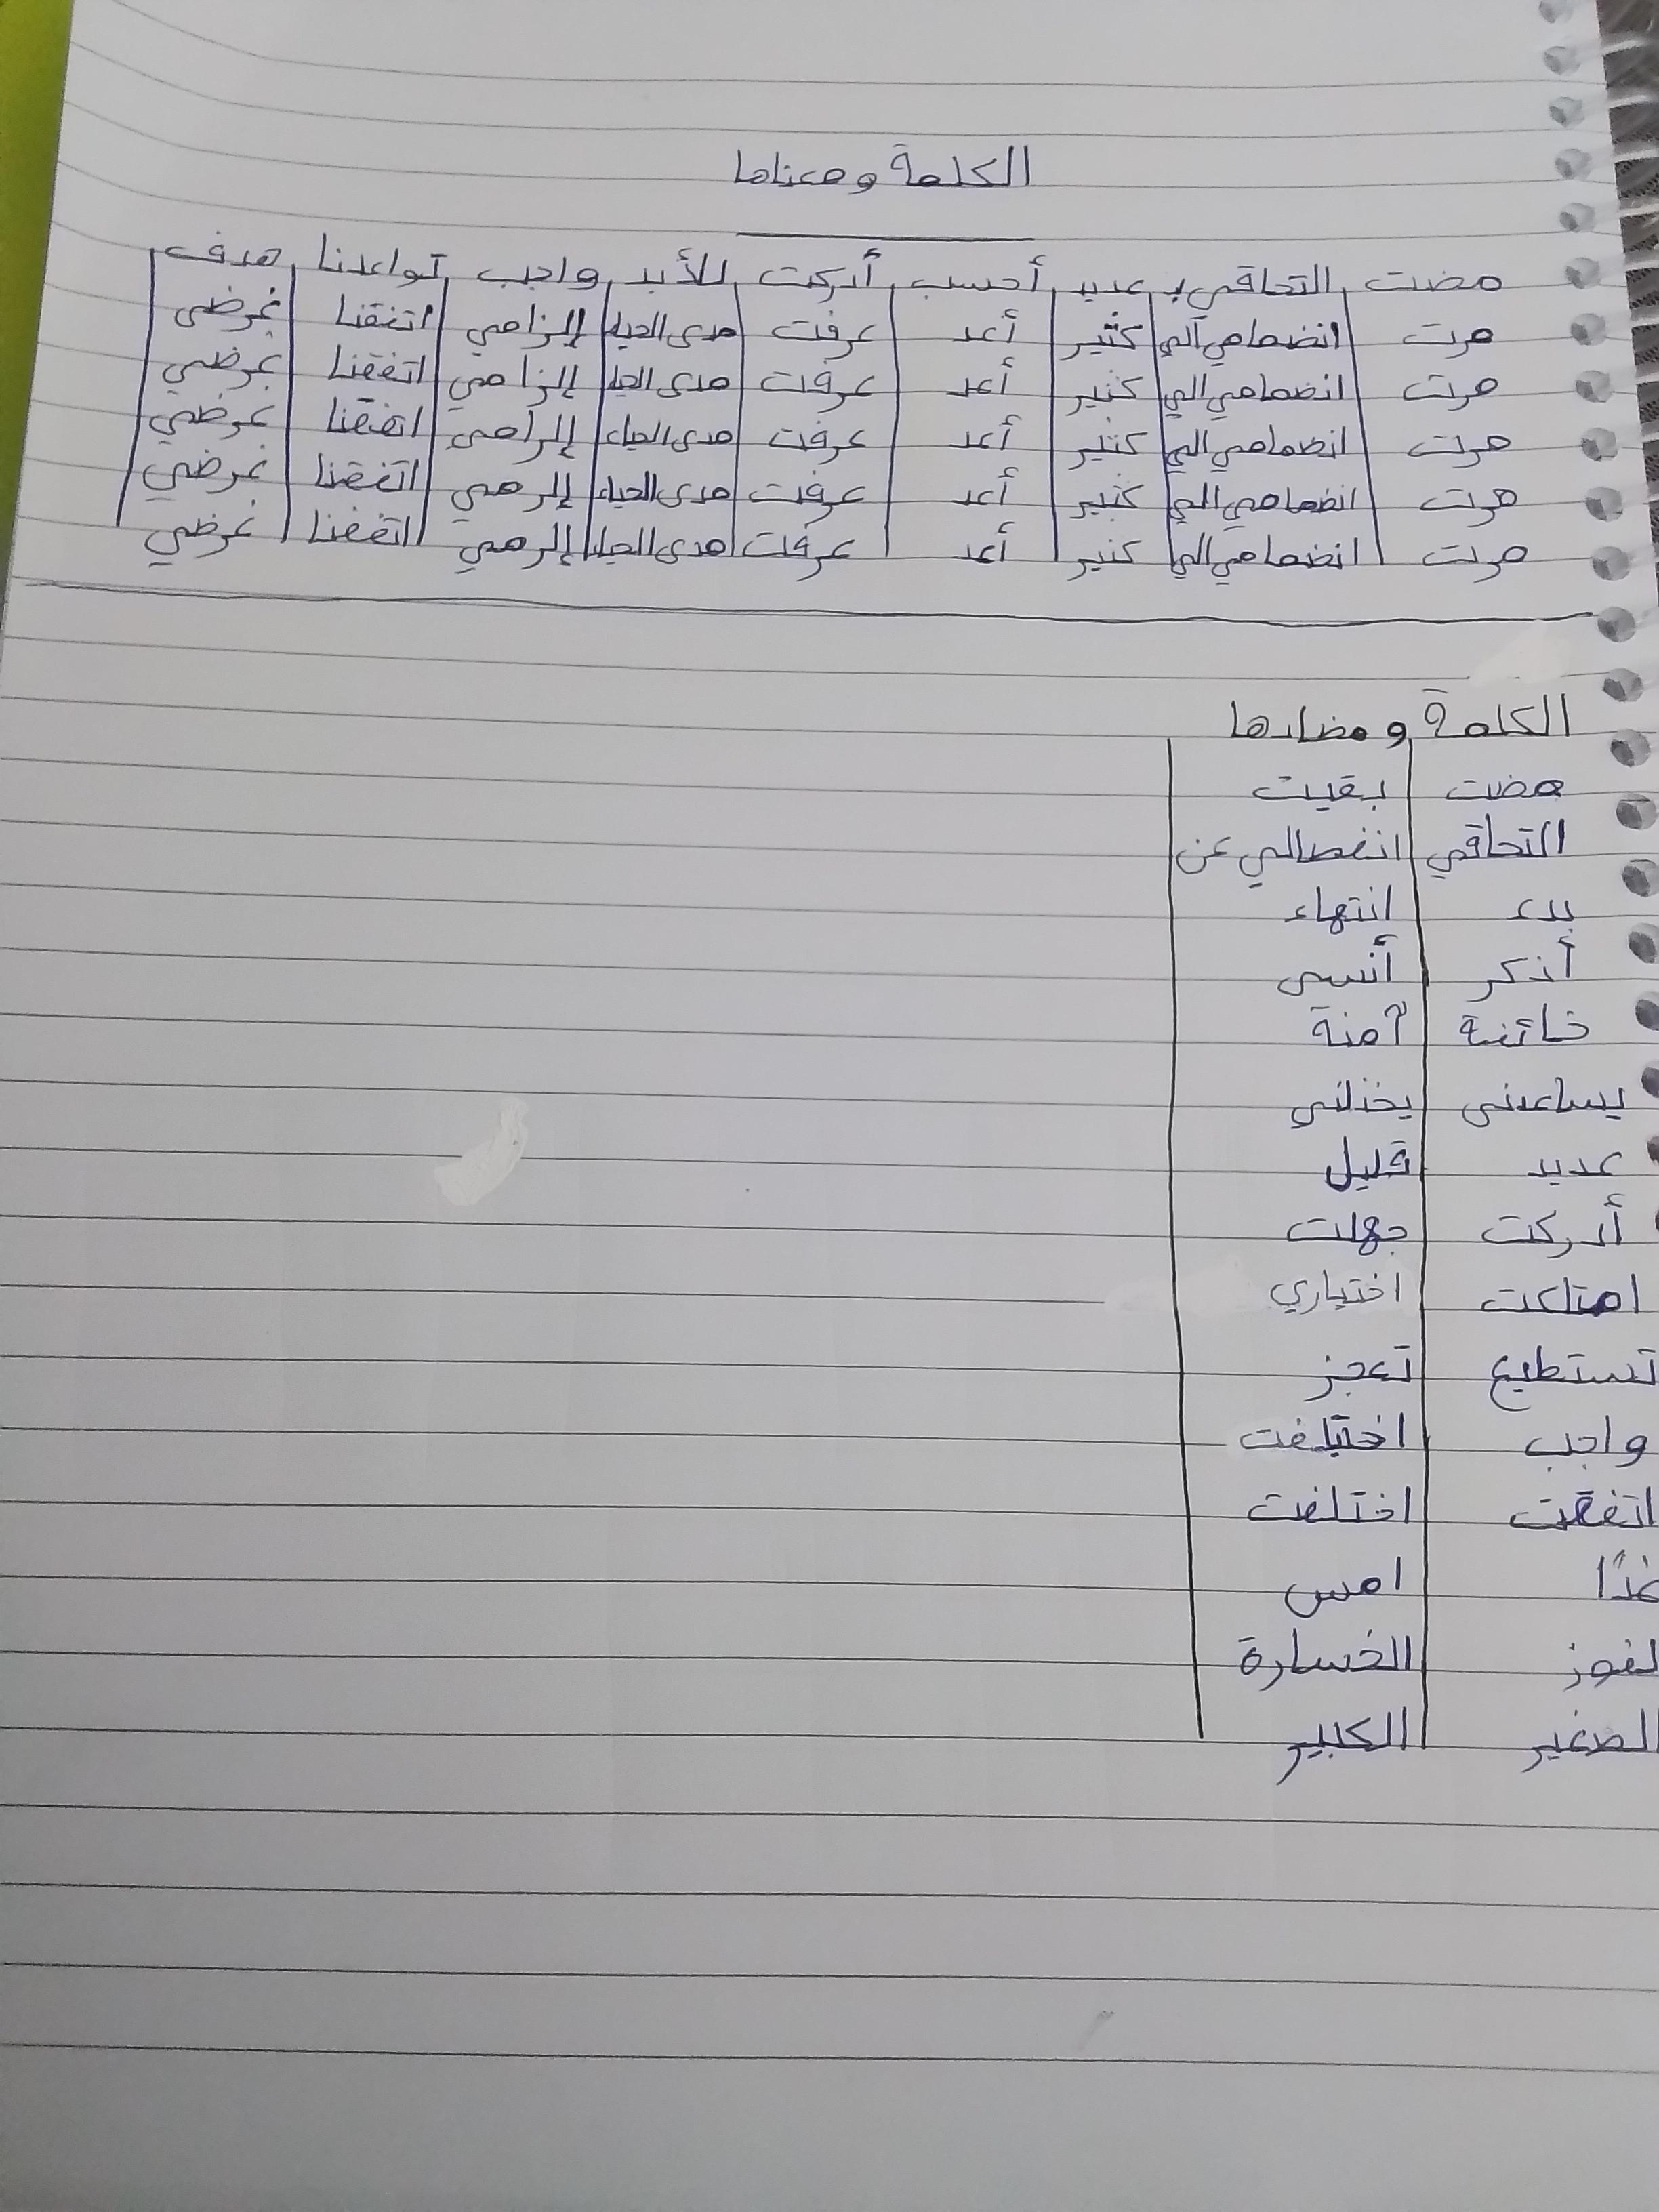 الكلمة ومعناها
مضت التحاقي ب عديد أحسب أدركت للأبد واجب تواعدنا هدف
مرت انضمامي الي كثير أعد عرفت مدى الحياء إلزامي اتفقنا غرضي
مرت انضمامي الي كثير أعد عرفت مدى الحياء إلزامي اتفقنا غرضي
مرت انضمامي الي كثير أعد عرفت مدى الحياء إلزامي اتفقنا غرضي
مرت انضمامي الي كثير أعد عرفت مدى الحياء إلزمي اتفقنا غرضي
مرت انضمامي الي كثير أعد عرفت مدى الحياء إلزمي اتفقنا غرضي
الكلمة ومضادها
مضت بقيت
التحاقي انفصالي عن
بدء انتهاء
أذكر أنسى
خائفة آمنة
يساعدني يخذلني
عديد قليل
أدركت جهلت
امتلكت اختياري
تستطيع تعجز
واجب اختلفت
اتفقت اختلفت
غدًا امس
لفوز الخسارة
لصغير الكبير